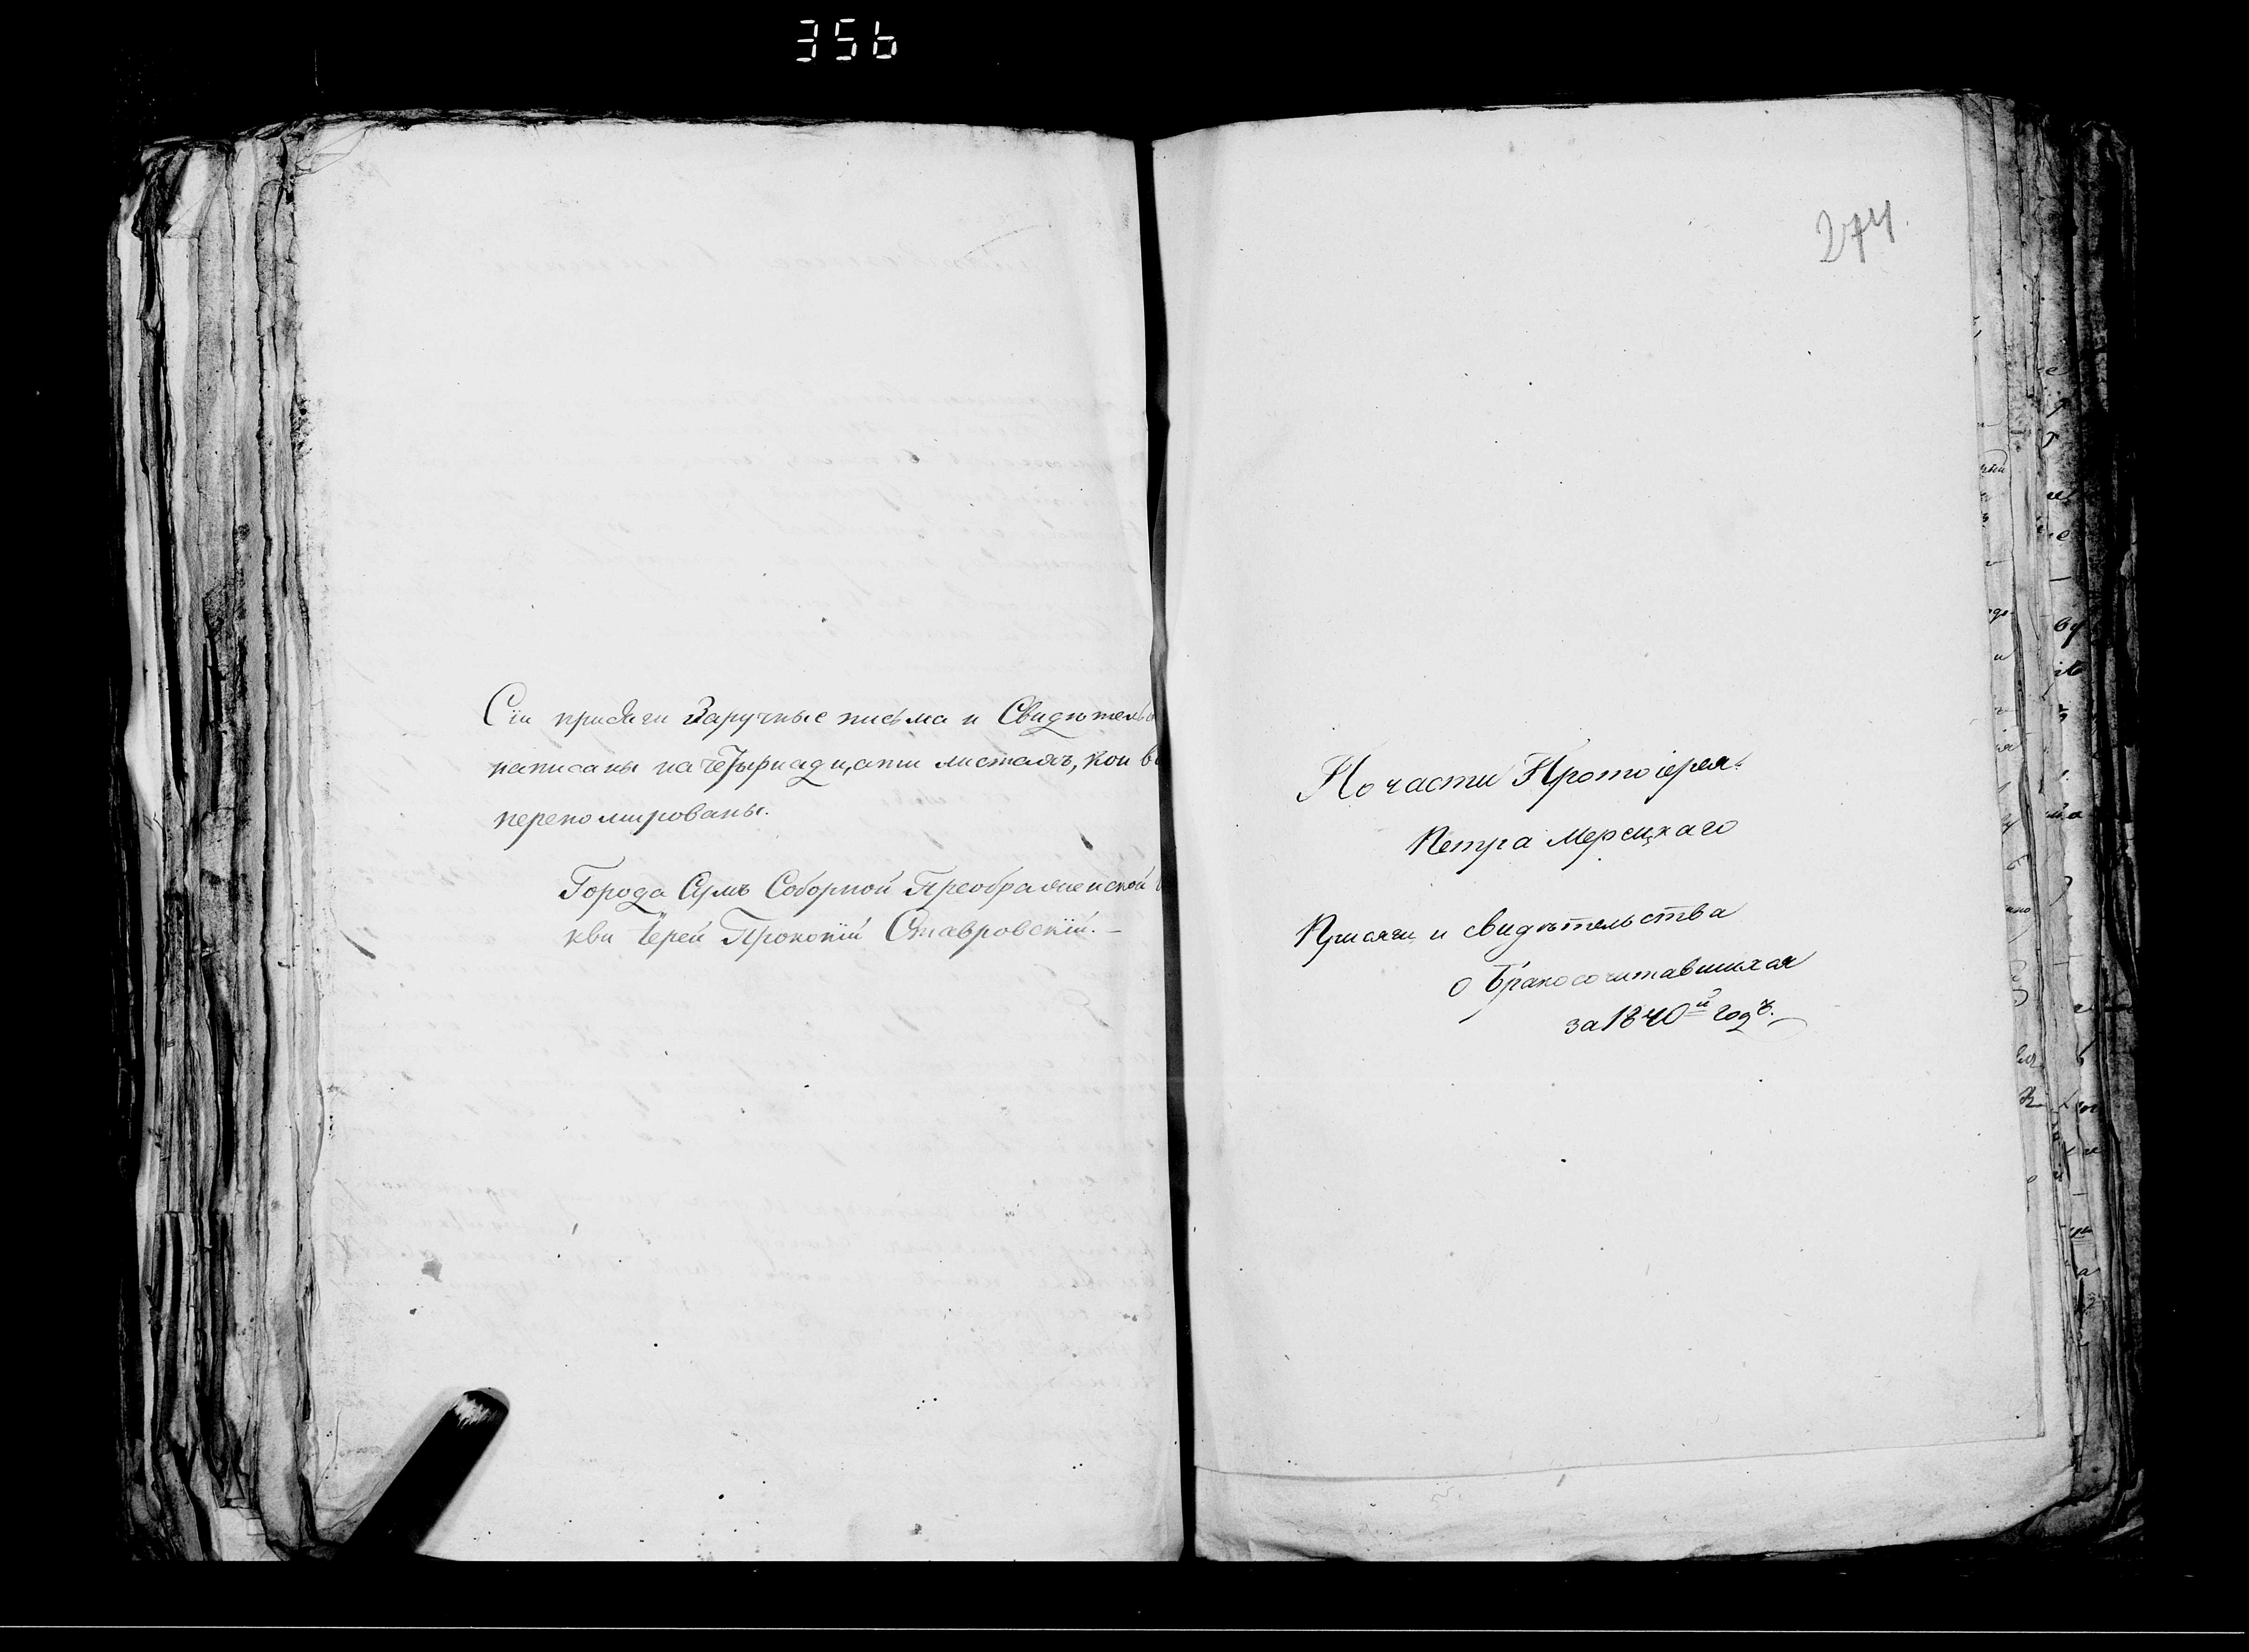 356
Сіи присяги Заручные письма и Свидѣтельс
написаны на четырнадцати листахъ, кои в
перенолмированы.
Города Сумъ Соборной Преображенской
кви Іерей Прокопій Ставровскій. –
274.
По части Протоіерея
Петра Мерецкаго
Присяги и свидѣтельства
о бракосочитавшихся
за 1840й годъ.